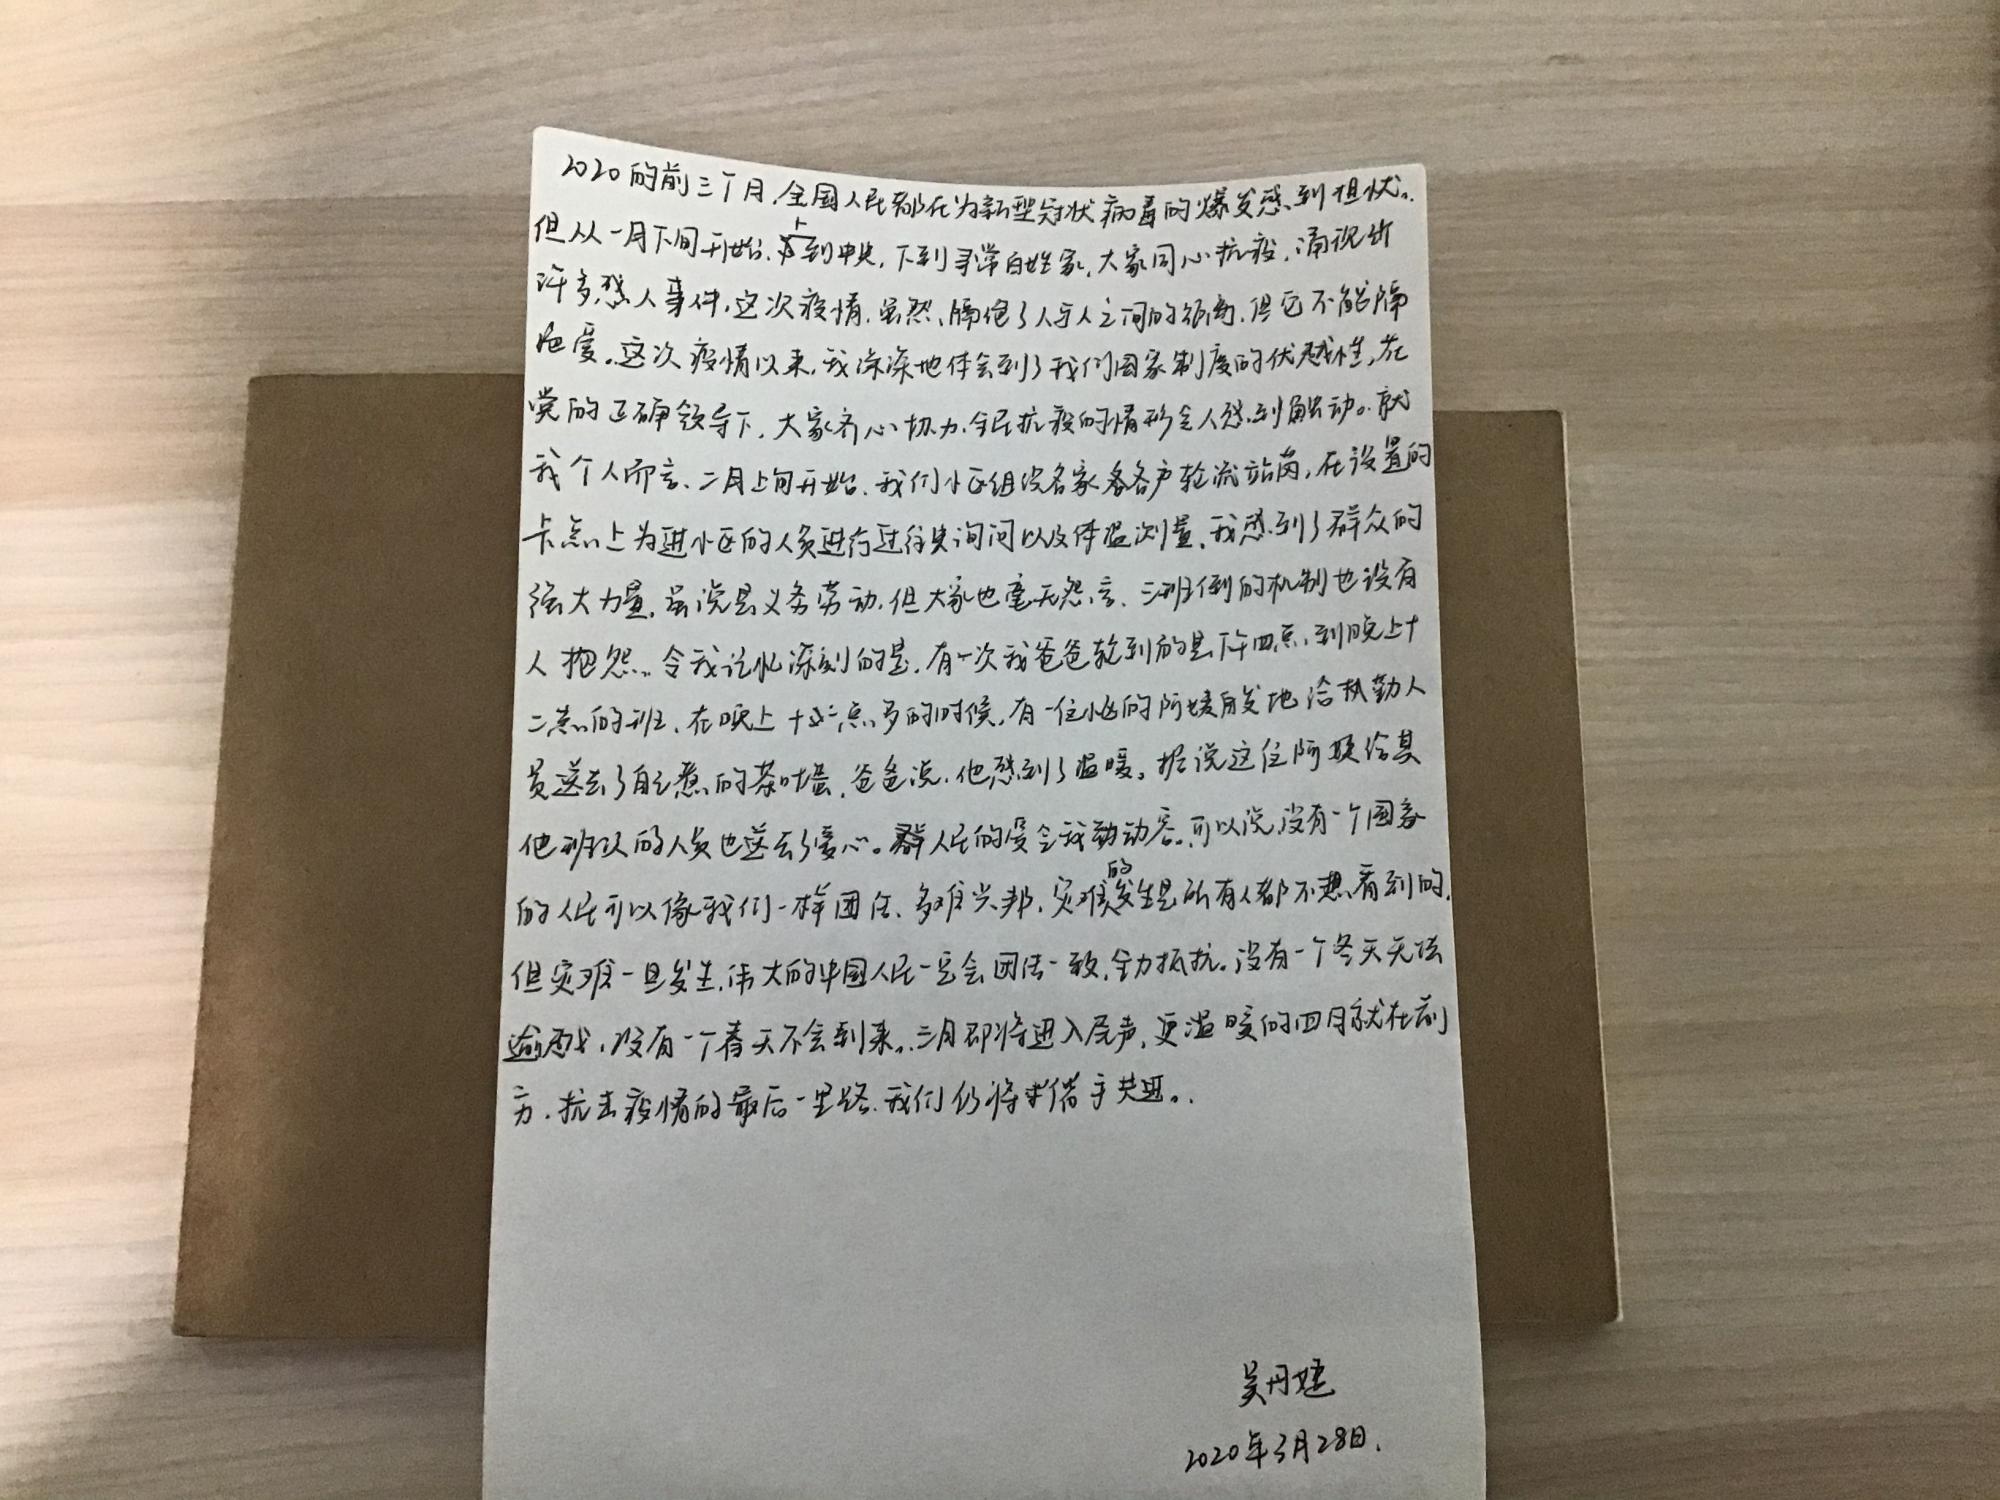 2020的前三个月,全国人民都在为新型冠状病毒的爆发感到担忧。
但从一月下旬开始,上到中央,下到寻常百姓家,大家同心抗疫,涌现出
许多感人事件,这次疫情,虽然隔绝了人与人之间的距离,但它不能隔
绝爱。这次疫情以来,我深深地体会到了我们国家制度的优越性,在
党的正确领导下,大家齐心协力,全民抗疫的情形令人感到触动。就
我个人而言,二月上旬开始,我们小区组织各家各户轮流站岗,在设置的
卡点上为进小区的人员进行过往史询问以及体温测量,我感到了群众的
强大力量,虽说是义务劳动,但大家也毫无怨言,三班倒的机制也没有
人抱怨。令我记忆深刻的是,有一次我爸爸轮到的是下午四点到晚上十
二点的班,在晚上十点多的时候,有一位小区的阿姨自发地给执勤人
员送去了自己煮的茶叶蛋,爸爸说,他感到了温暖。据说这位阿姨给其
他班次的人员也送去了爱心。人民的爱令我动容。可以说没有一个国家
的人民可以像我们一样团结,多难兴邦,灾难的发生是所有人都不想看到的,
但灾难一旦发生,伟大的中国人民一定会团结一致,全力抵抗。没有一个冬天无法
逾越,没有一个春天不会到来。三月即将进入尾声,更温暖的四月就在前
方,抗击疫情的最后一里路,我们仍将携手共进。
吴丹婕
2020年3月28日.